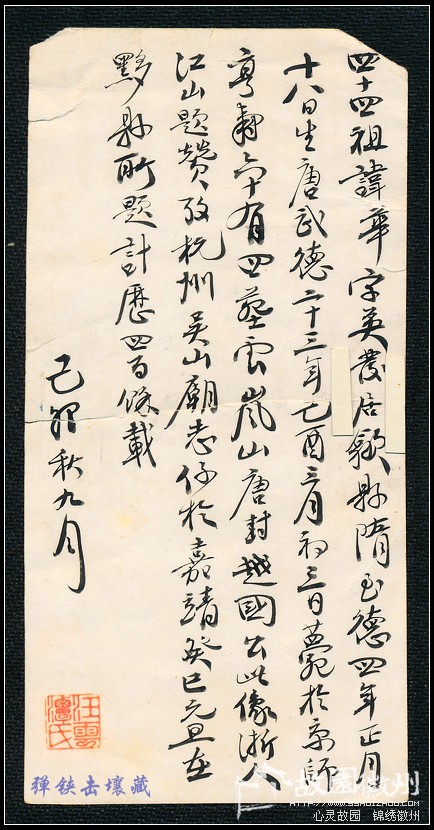 四十四祖諱華字英發居歙縣隋至德四年正月
十八日生唐武德二十三年乙酉三月初三日薨於京師
享壽六十有四塟雲嵐山唐封越國公此像浙人
江山題贊攷杭州吳山廟志作於嘉靖癸巳元旦在
黟縣所題計歷四百餘載
己卯秋九月
弹铗击壤藏
故園徽州
心灵故园 锦绣徽州